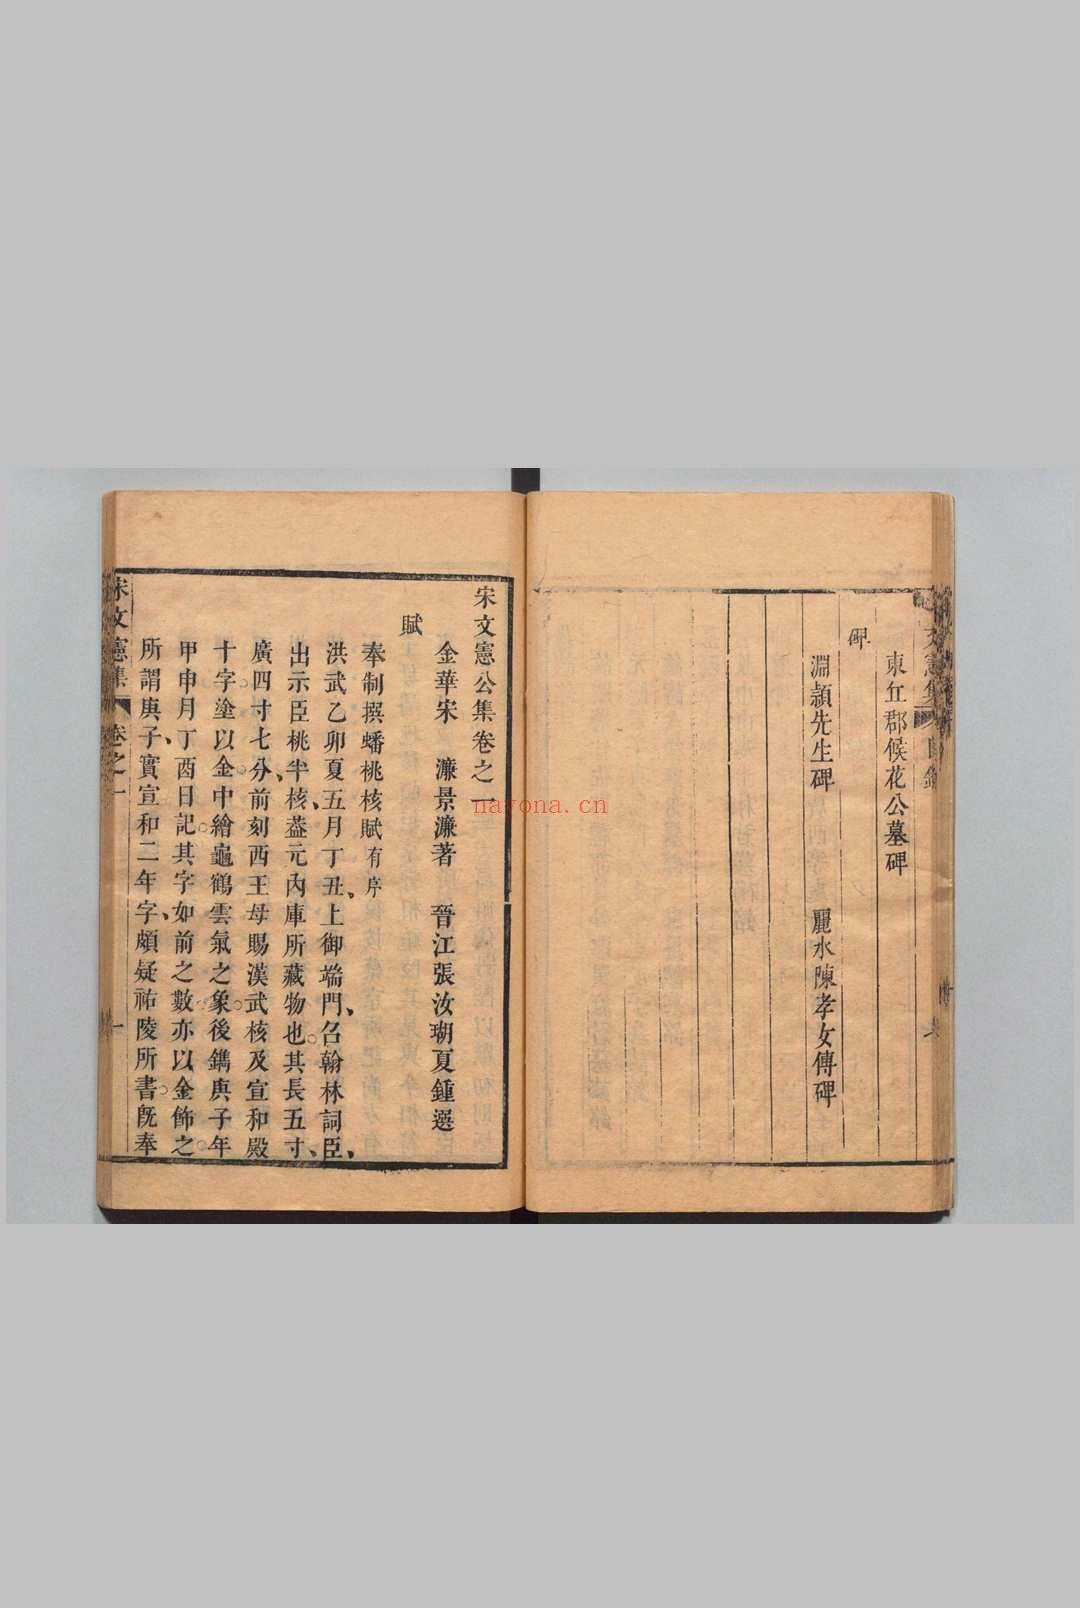 東丘郡候花公墓碑
碑
淵頴先生碑 麗水陳孝女傳碑
宋文憲公集卷之一
金華宋 濂景濂著 晉江張汝瑚夏鍾選
賦
奉制撰蟠桃核賦有序
洪武乙卯夏五月丁丑、上御端門、召翰林詞臣、
出示臣桃半核、葢元内庫所藏物也。其長五寸、
廣四寸七分、前刻西王母賜漢武核及宣和殿
十字塗以金中繪龜鶴雲氣之象。後鐫庚子年
甲申月丁酉日記。其字如前之數亦以金飾之
所謂庚子、實宣和二年字、頗疑祐陵所書。旣奉
宋文憲集 卷之一
一
nayona.cn